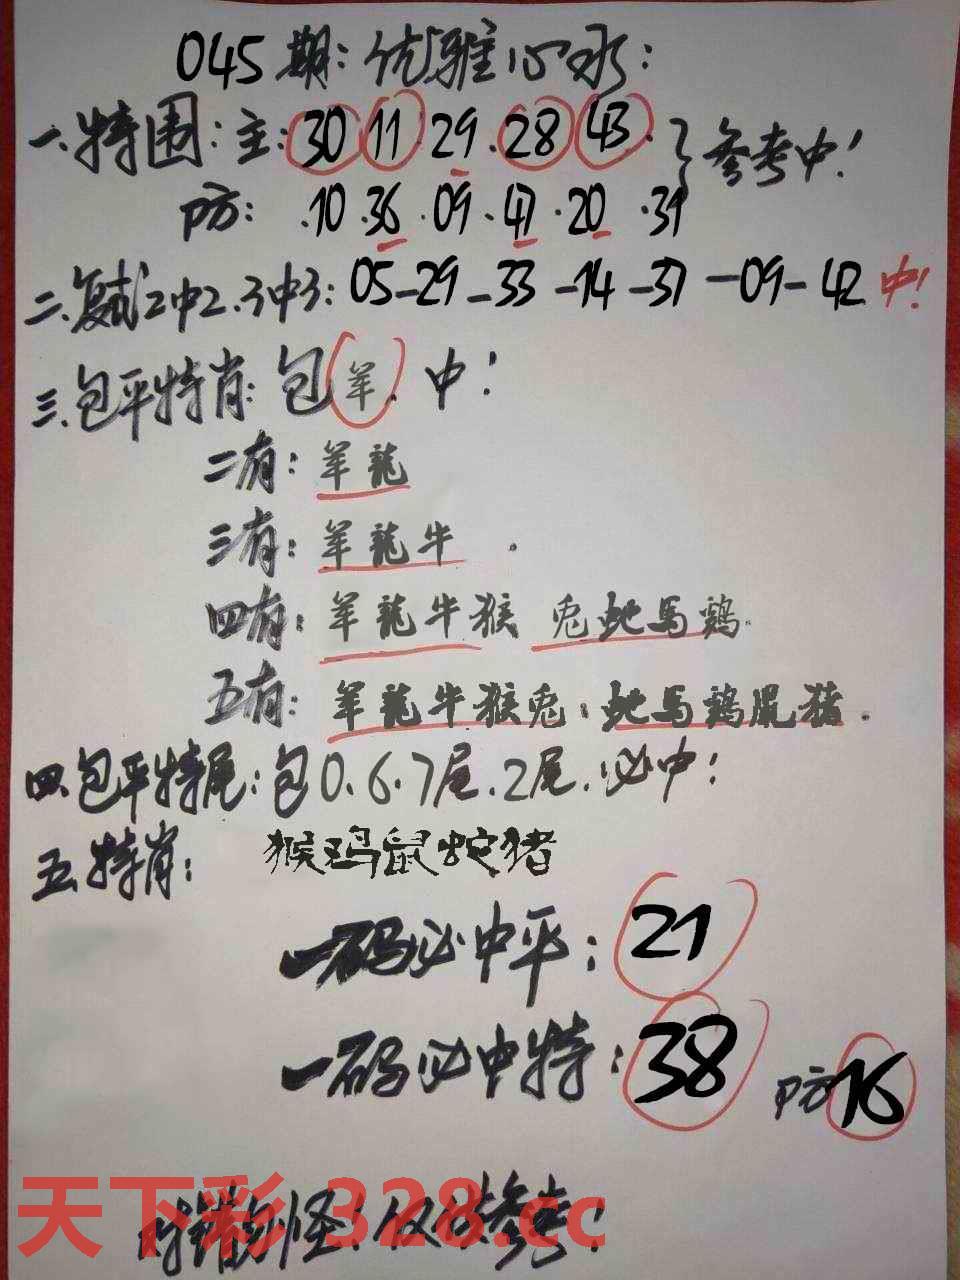 045期:优雅心水:
一.特围:主:30 11 29.28 43.}参考中!
防: .10.36.09.47.20.31
二.复式2中2.3中3:05-29-33-14-37-09-42 中!
三.包平特肖:包羊.中!
二有:羊龍
三有:羊龍牛.
四有:羊龍牛猴 兎蛇馬鷄.
五有:羊龍牛猴兎:蛇馬鷄鼠猪.
四.包平特尾:包0.6.7尾.2尾.必中!
五.特肖: 猴鸡鼠蛇猪
一码必中平:21
一码必中特:38 防16
勿怪!仅供参考!
天下彩 328.cc